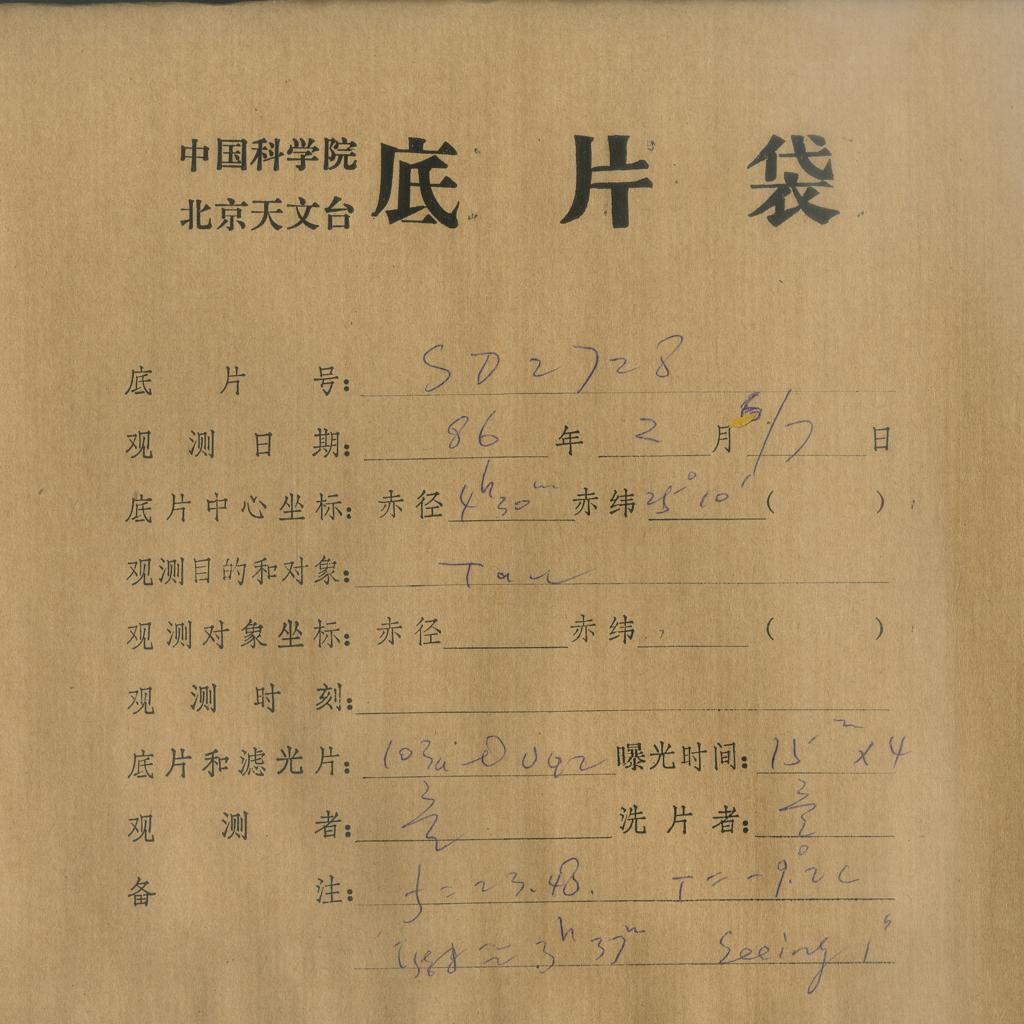 中国科学院
北京天文台
底片袋
底片号: SD2728
观测日期: 86年2月6/7日
底片中心坐标: 赤径4h30m赤纬25°10′( )
观测目的和对象: Tau
观测对象坐标: 赤径 赤纬 ( )
观测时刻:
底片和滤光片: 103a 曝光时间: 15m×4
观测者: 洗片者:
备注: f=23.48. T=-9.°2C
≈3h37m Seeing 1"